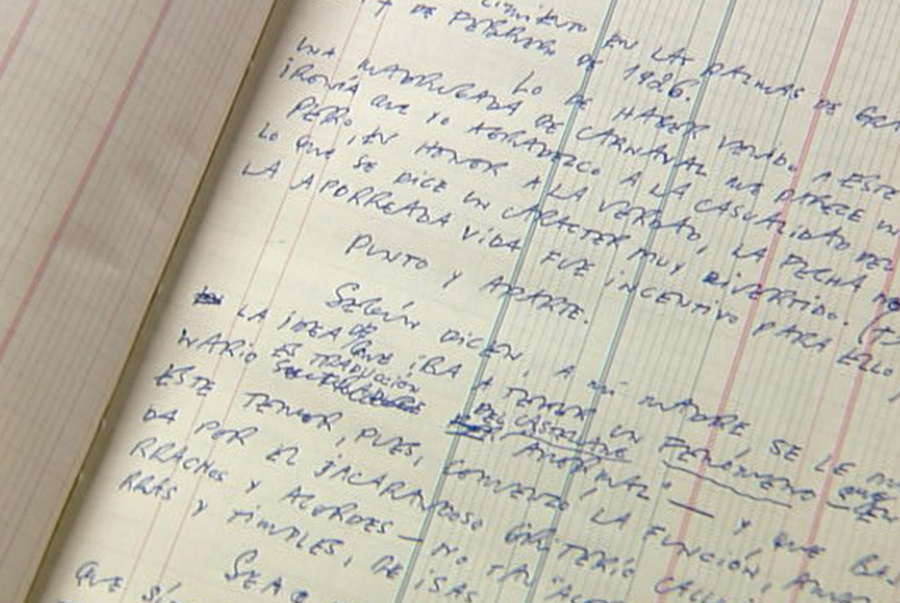 EN LAS PALMAS DE GRA
17 DE FEBRERO DE 1926.
LO DE HABER VENIDO A ESTE
UNA MADRUGADA DE CARNAVAL ME PARECE UN
IRONÍA QUE YO AGRADEZCO A LA CASUALIDAD DEL
PERO, EN HONOR A LA VERDAD, LA FECHA NO
LO QUE SE DICE UN CARÁCTER MUY DIVERTIDO. (+)
LA APORREADA VIDA FUE INCENTIVO PARA ELLO,
PUNTO Y APARTE.
SEGÚN DICEN, A MI MADRE SE LE
LA IDEA DE QUE IBA A TENER UN FENÓMENO QUE EN
NARIO ES TRADUCCIÓN DEL CASTELLANO "ANORMAL" — Y QUE
ESTE TEMOR, PUES, COMENZÓ LA FUNCIÓN,
DA POR EL JACARANDOSO GRITERÍO CALL
RRACHOS Y ACORDES — NO TAN
RRAS Y TIMPLES, DE ISAS
SEA
QUE SÍ